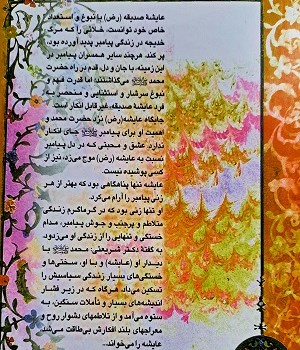 عایشهٔ صدیقه (رض) با نبوغ و استعداد
خاص خود توانست، خلائی را که مرگ
خدیجه در زندگی پیامبر پدید آورده بود،
پر کند. هرچند سایر همسران پیامبر در
این زمینه، با جان و دل، قدم در راه حضرت
محمد ﷺ می‌گذاشتند؛ اما قدرت فهم و
نبوغ سرشار و استثنایی و منحصر به
فرد عایشهٔ صدیقه، غیر قابل انکار است.
جایگاه عایشه (رض) نزد حضرت محمد و
اهمیت او برای پیامبر ﷺ جای انکار
ندارد. عشق و محبتی که در دل پیامبر
نسبت به عایشه (رض) موج می‌زد، نیز از
کسی پوشیده نیست.
عایشه تنها پناهگاهی بود که بهتر از هر
زنی پیامبر را آرام می‌کرد.
او تنها زنی بود که در گرماگرم زندگی
متلاطم و پرجنب و جوش پیامبر، مدام
خستگی و تنهایی را از زندگی او می‌زدود.
به گفتهٔ دکتر شریعتی: محمد ﷺ با
دیدار او (عایشه) و با او، سختی‌ها و
خستگی‌های بسیار زندگی سیاسیش را
تسکین می‌داد. هرگاه که در زیر فشار
اندیشه‌های بسیار و تأملات سنگین، به
ستوه می‌آمد و از تلاطمهای دشوار روح و
معراجهای بلند افکارش بی‌طاقت می‌شد
عایشه را می‌خواند...